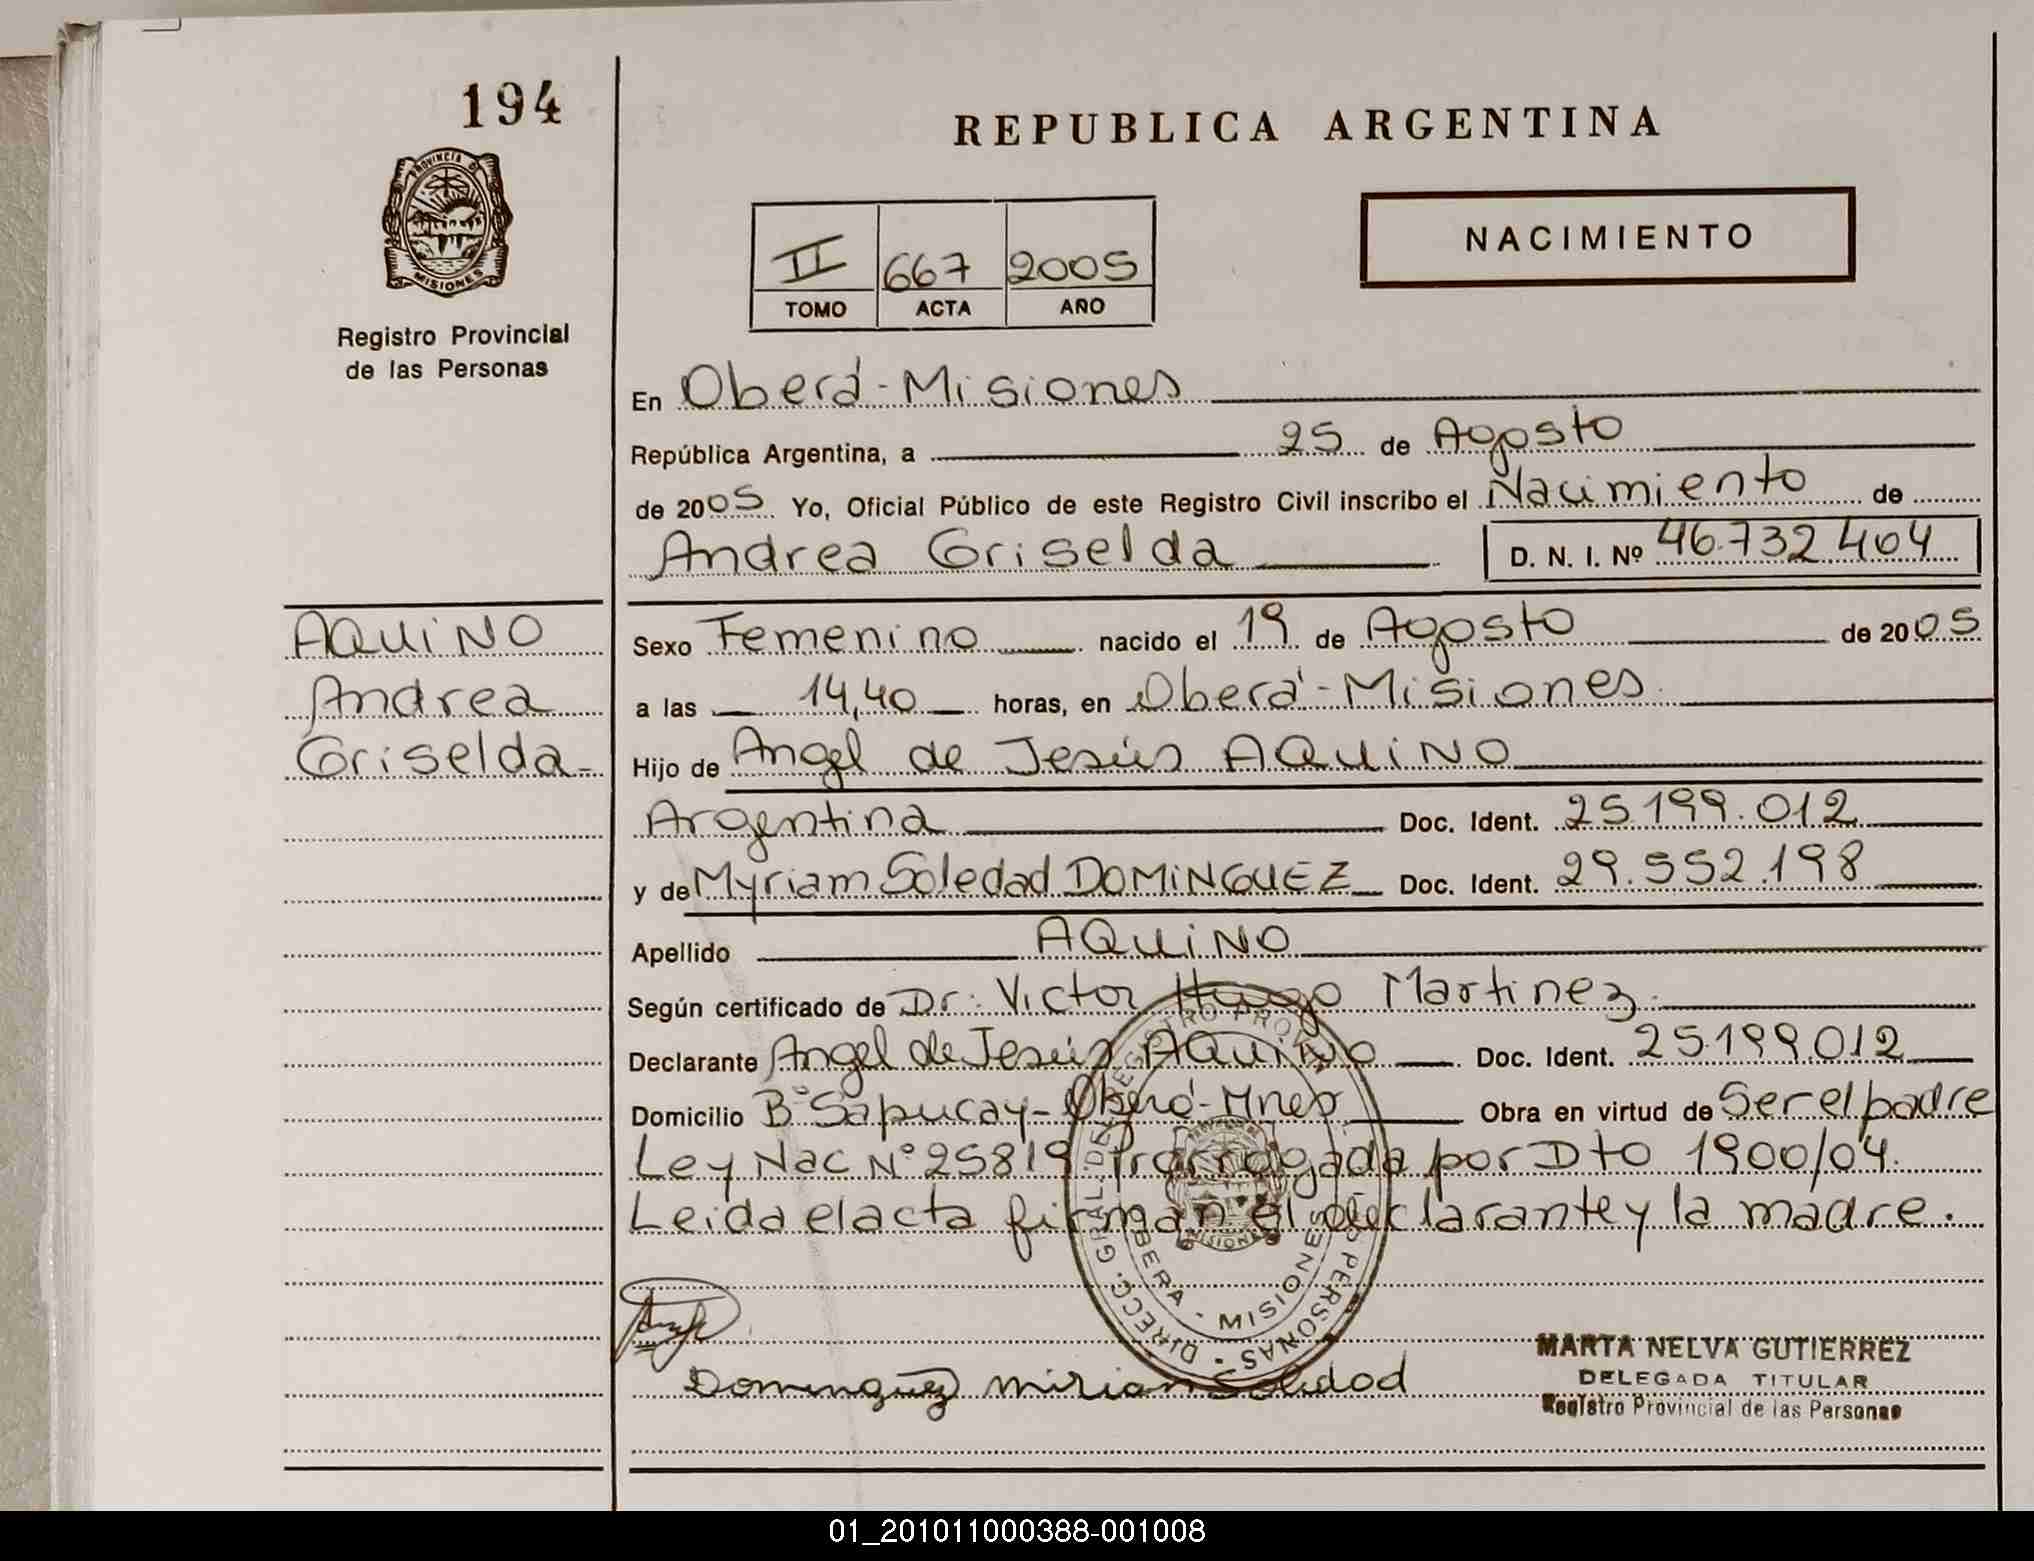 194
PROVINCIA DE
MISIONES
Registro Provincial
de las Personas
REPUBLICA ARGENTINA
NACIMIENTO
II 667 2005
TOMO ACTA AÑO
En Oberá - Misiones
República Argentina, a 25 de Agosto
de 2005 Yo, Oficial Público de este Registro Civil inscribo el Nacimiento de
Andrea Griselda D. N. I. Nº 46.732.404
AQUINO
Andrea
Griselda
Sexo Femenino nacido el 19 de Agosto de 2005
a las 14,40 horas, en Oberá - Misiones
Hijo de Angel de Jesús AQUINO
Argentina Doc. Ident. 25.199.012
y de Myriam Soledad DOMINGUEZ Doc. Ident. 29.552.198
Apellido AQUINO
Según certificado de Dr. Victor Hugo Martinez
Declarante Angel de Jesús AQUINO Doc. Ident. 25.199.012
Domicilio Bº Sapucay - Oberá - Mnes Obra en virtud de Ser el padre
Ley Nac Nº 25819 Prorrogada por Dto 1900/04.
Leida el acta firman el declarante y la madre.
OBERA - MISIONES
Dominguez Mirian Soledad
MARTA NELVA GUTIERREZ
DELEGADA TITULAR
Registro Provincial de las Personas
01_201011000388-001008